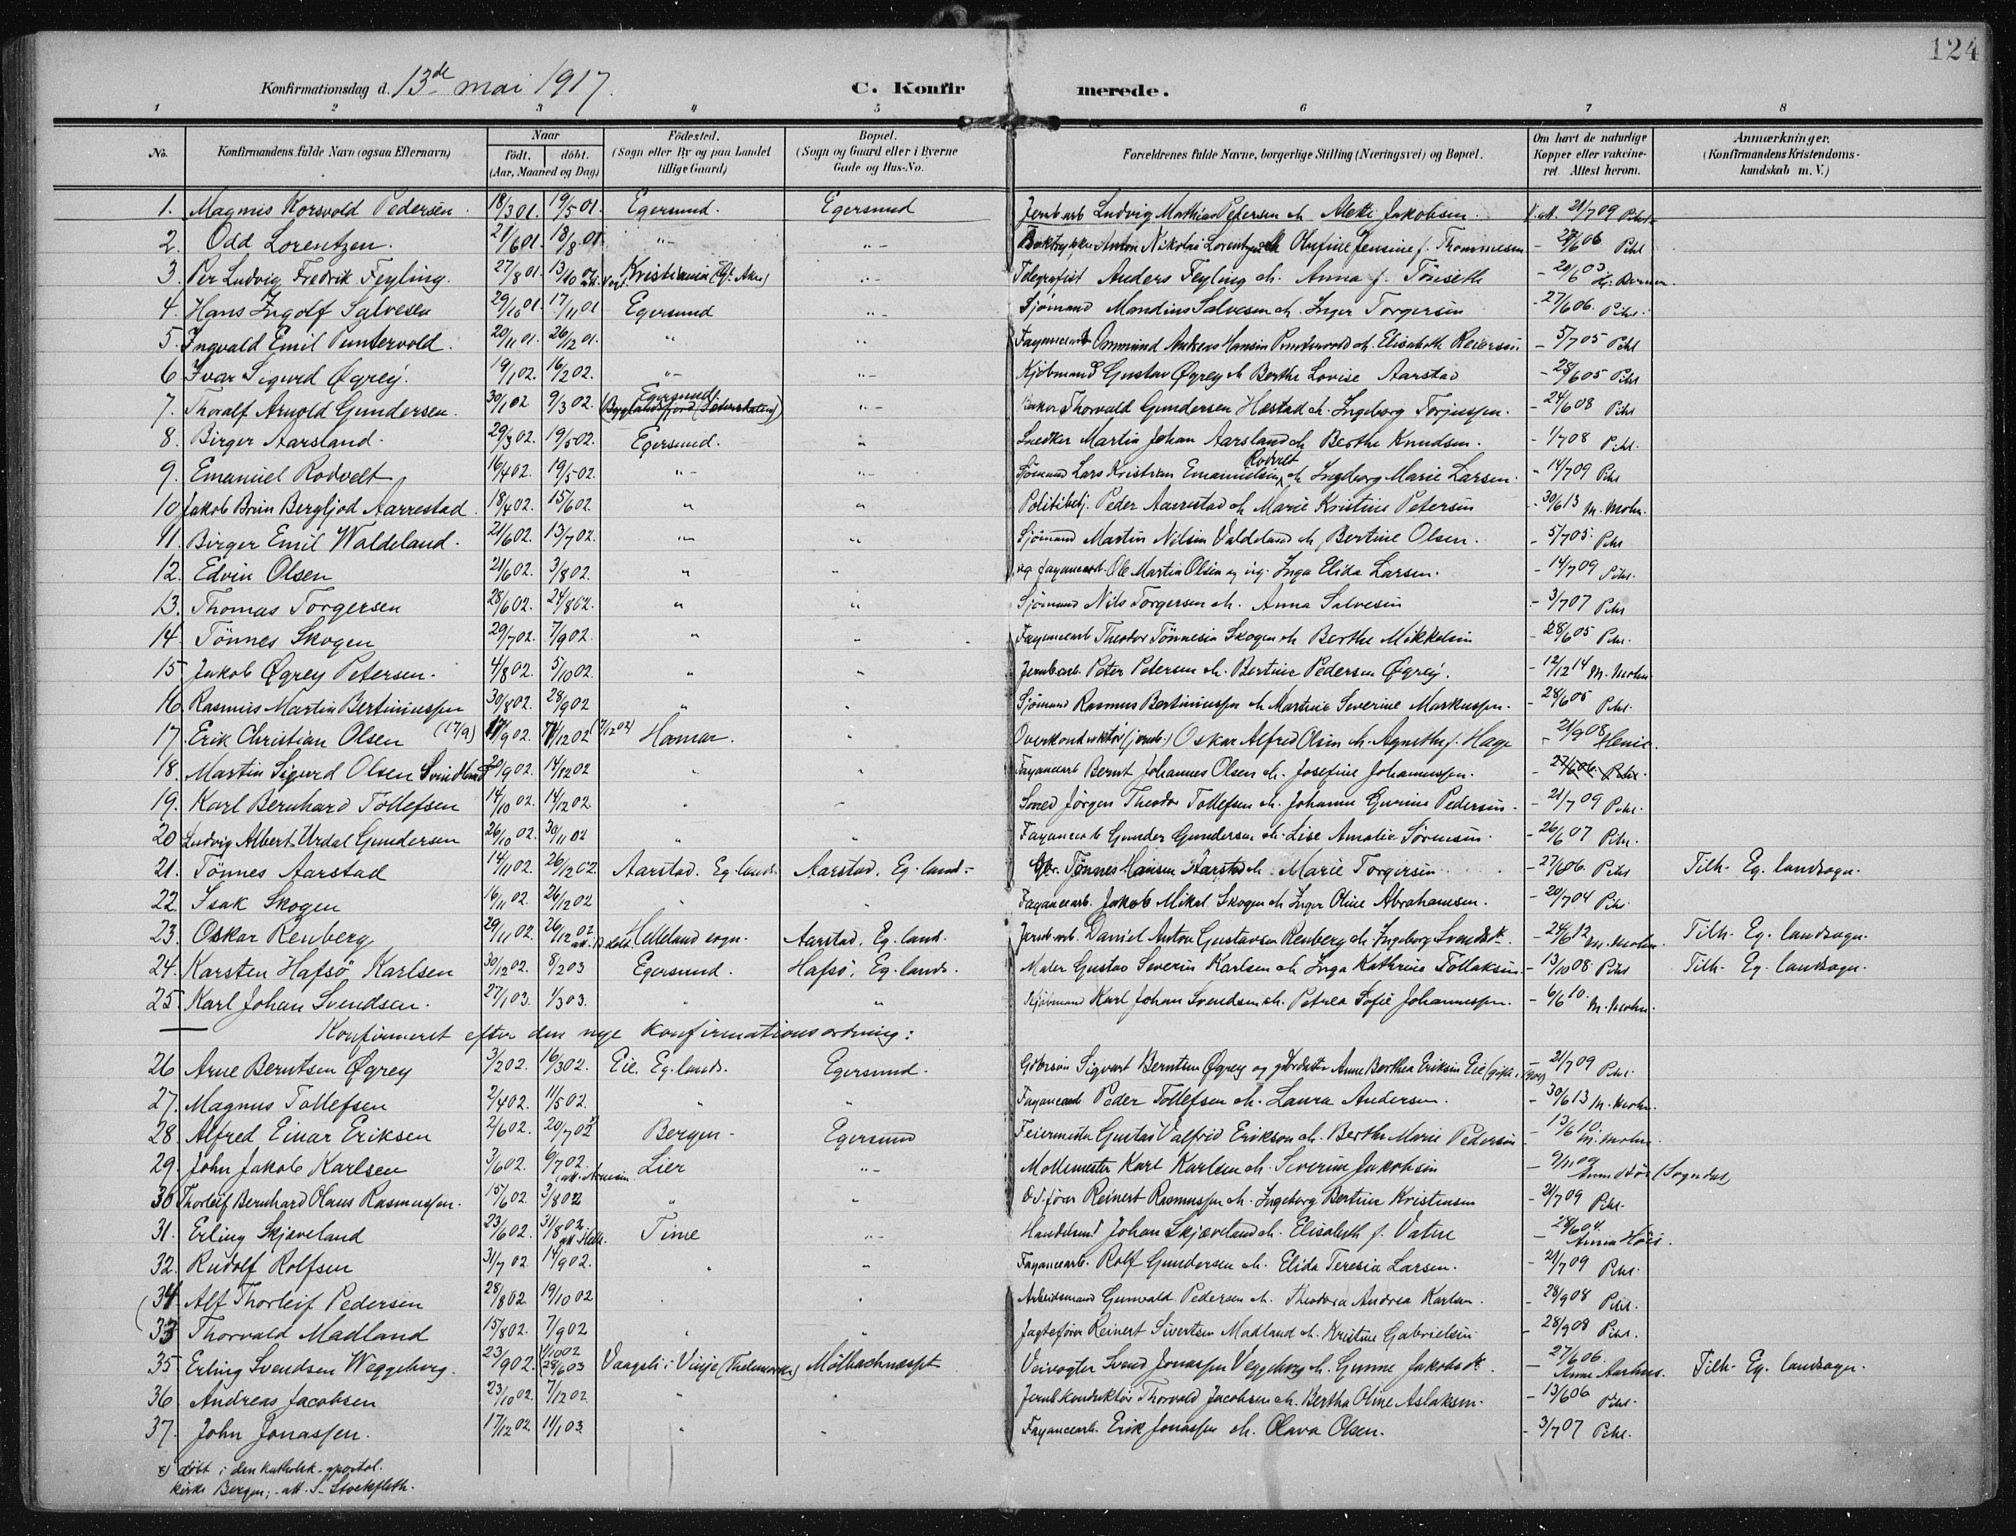 124
Konfirmationsdag d. 13de mai 1917. C. Konfirmerede.
1 2 3 4 5 6 7 8
No. Konfirmandens fulde Navn (ogsaa Efternavn) Naar født, døbt. (Aar, Maaned og Dag) Fødested. (Sogn eller By og paa Landet tillige Gaard) Bopæl. (Sogn og Gaard eller i Byerne Gade og Hus-No. Forældrenes fulde Navne, borgerlige Stilling (Næringsvei) og Bopæl. Om havt de naturlige Kopper eller vakcineret. Attest herom. Anmærkninger. (Konfirmandens Kristendomskundskab m. V.)
1. Magnus Korsvold Pedersen. 18/3 01. 19/5 01. Egersund. Egersund Jernbarb Ludvig Mathias Petersen & Alette Jakobsen. 21/7 09
2. Odd Lorentzen. 21/6 01. 18/8 01 " - " - Anton Nikolai Lorentzen & Olufine Jensine f. Trommesen - 06 Pihl
3. Per Ludvig Fredrik Feyling. 27/8 01. 13/10 01 Kristiania " - Telegrafist Anders Feyling & Anna f. Tönseth - 20/6 03.
4. Hans Ingolf Salvesen 29/10 01 17/11 01 Egersund " - Sjømand Mandius Salvesen & Inger Torgersen - 27/6 06. Pihl.
5. Ingvald Emil Puntervold. 20/11 01. 26/12 01. " " Fayancearb Ommund Andreas Hansen Puntervold & Elisabeth Reiersen. - 5/7 05 Pihl
6 Ivar Sigurd Øgrey. 19/1 02. 16/2 02. " - " - Kjøbmand Gustav Øgrey & Berthe Lovise Aarstad - 28/6 05 Pihl
7. Thoralf Arnold Gundersen. 30/1 02 9/3 02. Egersund " - Baker Thorvald Gundersen Hæstad & Ingeborg Torjussen. - 24/6 08 Pihl
8. Birger Aarsland. 29/3 02. 19/5 02. Egersund. " Snedker Martin Johan Aarsland & Berthe Knudsen. - 1/7 08 Pihl.
9. Emanuel Rodvelt 16/4 02. 19/5 02. " - " - Sømand Lars Kristian Emanuelsen Rodvelt & Ingeborg Marie Larsen. - 14/7 09 Pihl
10 Jakob Brun Bergljod Aarrestad 18/4 02. 15/6 02. " " Politibetj. Peder Aarrestad & Marie Kristine Petersen - 30/6 13 M. Mohn.
11. Birger Emil Waldeland. 21/6 02. 13/7 02. " - " Sjømand Martin Nilsen Valdeland & Bertine Olsen. - 5/7 05. Pihl
12. Edvin Olsen 21/6 02. 3/8 02. " " Fayancearb. Ole Martin Olsen og Inga Elida Larsen. - 14/7 09 Pihl.
13. Thomas Torgersen 28/6 02. 24/8 02. " " Sjømand Nils Torgersen & Anna Salvesen - 3/7 07 Pihl
14. Tönnes Skogen 29/7 02. 7/9 02. " " Fayancearb Theodor Tönnesen Skogen & Berthe Mikkelsen - 28/6 05 Pihl.
15 Jakob Øgrey Petersen. 4/8 02. 5/10 02. " " Jernbarb. Peter Petersen & Bertine Pedersen Øgrey. - 12/12 14 M. Mohn
16. Rasmus Martin Bertinussen 30/8 02. 28/9 02 " " Sjømand Rasmus Bertinussen & Martine Severine Markussen. - 28/6 05 Pihl.
17. Erik Christian Olsen (17/9) 17/9 02 7/12 02 (7/12 02) Hamar. " Overkonduktör (jernb.) Oskar Alfred Olsen & Agnethe f. Hage - 21/9 08
18. Martin Sigurd Olsen Svindland 20/9 02 14/12 02 " " Fayancearb Bernt Johannes Olsen & Josefine Johannessen. - 27/6 06. Pihl.
19. Karl Bernhard Tollefsen 14/10 02 14/12 02 " " Smed Jörgen Theodor Tollefsen & Johanne Gurine Pedersen - 21/7 09 Pihl.
20 Ludvig Albert Urdal Gundersen 26/10 02 30/11 02 " " Fayancearb Gunder Gundersen & Lise Amalie Sørensen. - 26/6 07 Pihl.
21. Tönnes Aarstad 14/11 02 26/12 02 Aarstad. Eg. lands. Aarstad. Eg. land. - Tönnes Hansen Aarstad & Marie Torgersen - 27/6 06. Pihl Tilh. Eg. landsogn.
22 Isak Skogen 16/11 02 26/12 02 " " Fayancearb. Jakob Mikal Skogen & Inger Oline Abrahamsen. - 20/7 04 Pihl
23. Oskar Renberg 29/11 02. 26/12 02 Helleland sogn. Aarstad. Eg. land. Jernbarb. Daniel Anton Gustavsen Renberg & Ingeborg Svendsdt. - 24/6 12 M. Mohn. Tilh. Eg. landsogn.
24. Karsten Hafsö Karlsen 30/12 02. 8/2 03 Egersund. Hafsö, Eg. lands. Maler Gustav Severin Karlsen & Inga Kathrine Tollaksen - 13/10 08 Pihl Tilh. Eg. landsogn.
25 Karl Johan Svendsen. 27/1 03. 1/3 03. " " Kjøbmand Karl Johan Svendsen & Petrea Sofie Johannessen. - 6/6 10. M. Mohn.
Konfirmeret efter den nye konfirmationsordning:
26 Arne Berntsen Øgrey 3/2 02. 16/3 02. Eie. Eg. lands. Egersund. Sigvart Berntsen Øgrey og Anne Berthea Eriksen Eie - 21/7 09 Pihl.
27. Magnus Tollefsen 2/4 02. 11/5 02. " " Fayancearb Peder Tollefsen & Laura Andersen. - 30/6 13 M. Mohn.
28. Alfred Einar Eriksen 2/6 02. 20/7 02 Bergen - Egersund Feiermester Gustav Valfrid Erikson & Berthe Marie Pedersen - 13/6 10. M. Mohn
29. John Jakob Karlsen 3/6 02. 6/7 02. Lier " - Møllemester Karl Karlsen & Severine Jakobsen - (Sogndal
30 Thorleif Bernhard Olaus Rasmussen. 15/6 02. 3/8 02 " " Reinert Rasmussen & Ingeborg Bertine Kristensen - 21/7 09 Pihl.
31. Erling Skjæveland 23/6 02. 31/8 02. Time " - Handelsmd Johan Skjæveland & Elisabeth f. Vatne - 28/6 04.
32. Rudolf Rolfsen 31/7 02. 14/9 02. " " Fayancearb. Rolf Gundersen & Elida Teresia Larsen. - 21/7 09 Pihl.
34 Alf Thorleif Pedersen 28/8 02. 19/10 02 " " Arbeidsmand Gunvald Pedersen & Theodora Andrea Karlsen - 28/9 08 Pihl.
33 Thorvald Madland 15/8 02. 7/9 02 " " Jagtefører Reinert Sivertsen Madland & Kristine Gabrielsen - 28/9 08 Pihl.
35 Erling Svendsen Weggeberg. 23/9 02. (28/6 03 Vaagsli i Vinje (Thelemarken) Mølbachnæsset Veivogter Svend Jonassen Veggeberg & Gunne Jakobsdt. - 27/6 06. Tilh. Eg. landsogn.
36 Andreas Jacobsen 23/10 02. 7/12 02 " " Jernbkonduktör Thorvald Jacobsen & Bertha Oline Aslaksen. - 13/6 06 Pihl.
37. John Jonassen. 17/12 02 11/1 03. " " Fayancearb. Erik Jonassen & Olava Olsen. - 3/7 07 Pihl.
x) døbt i den katholsk-apostol.
kirke Bergen; - att. S. Stockfleth.